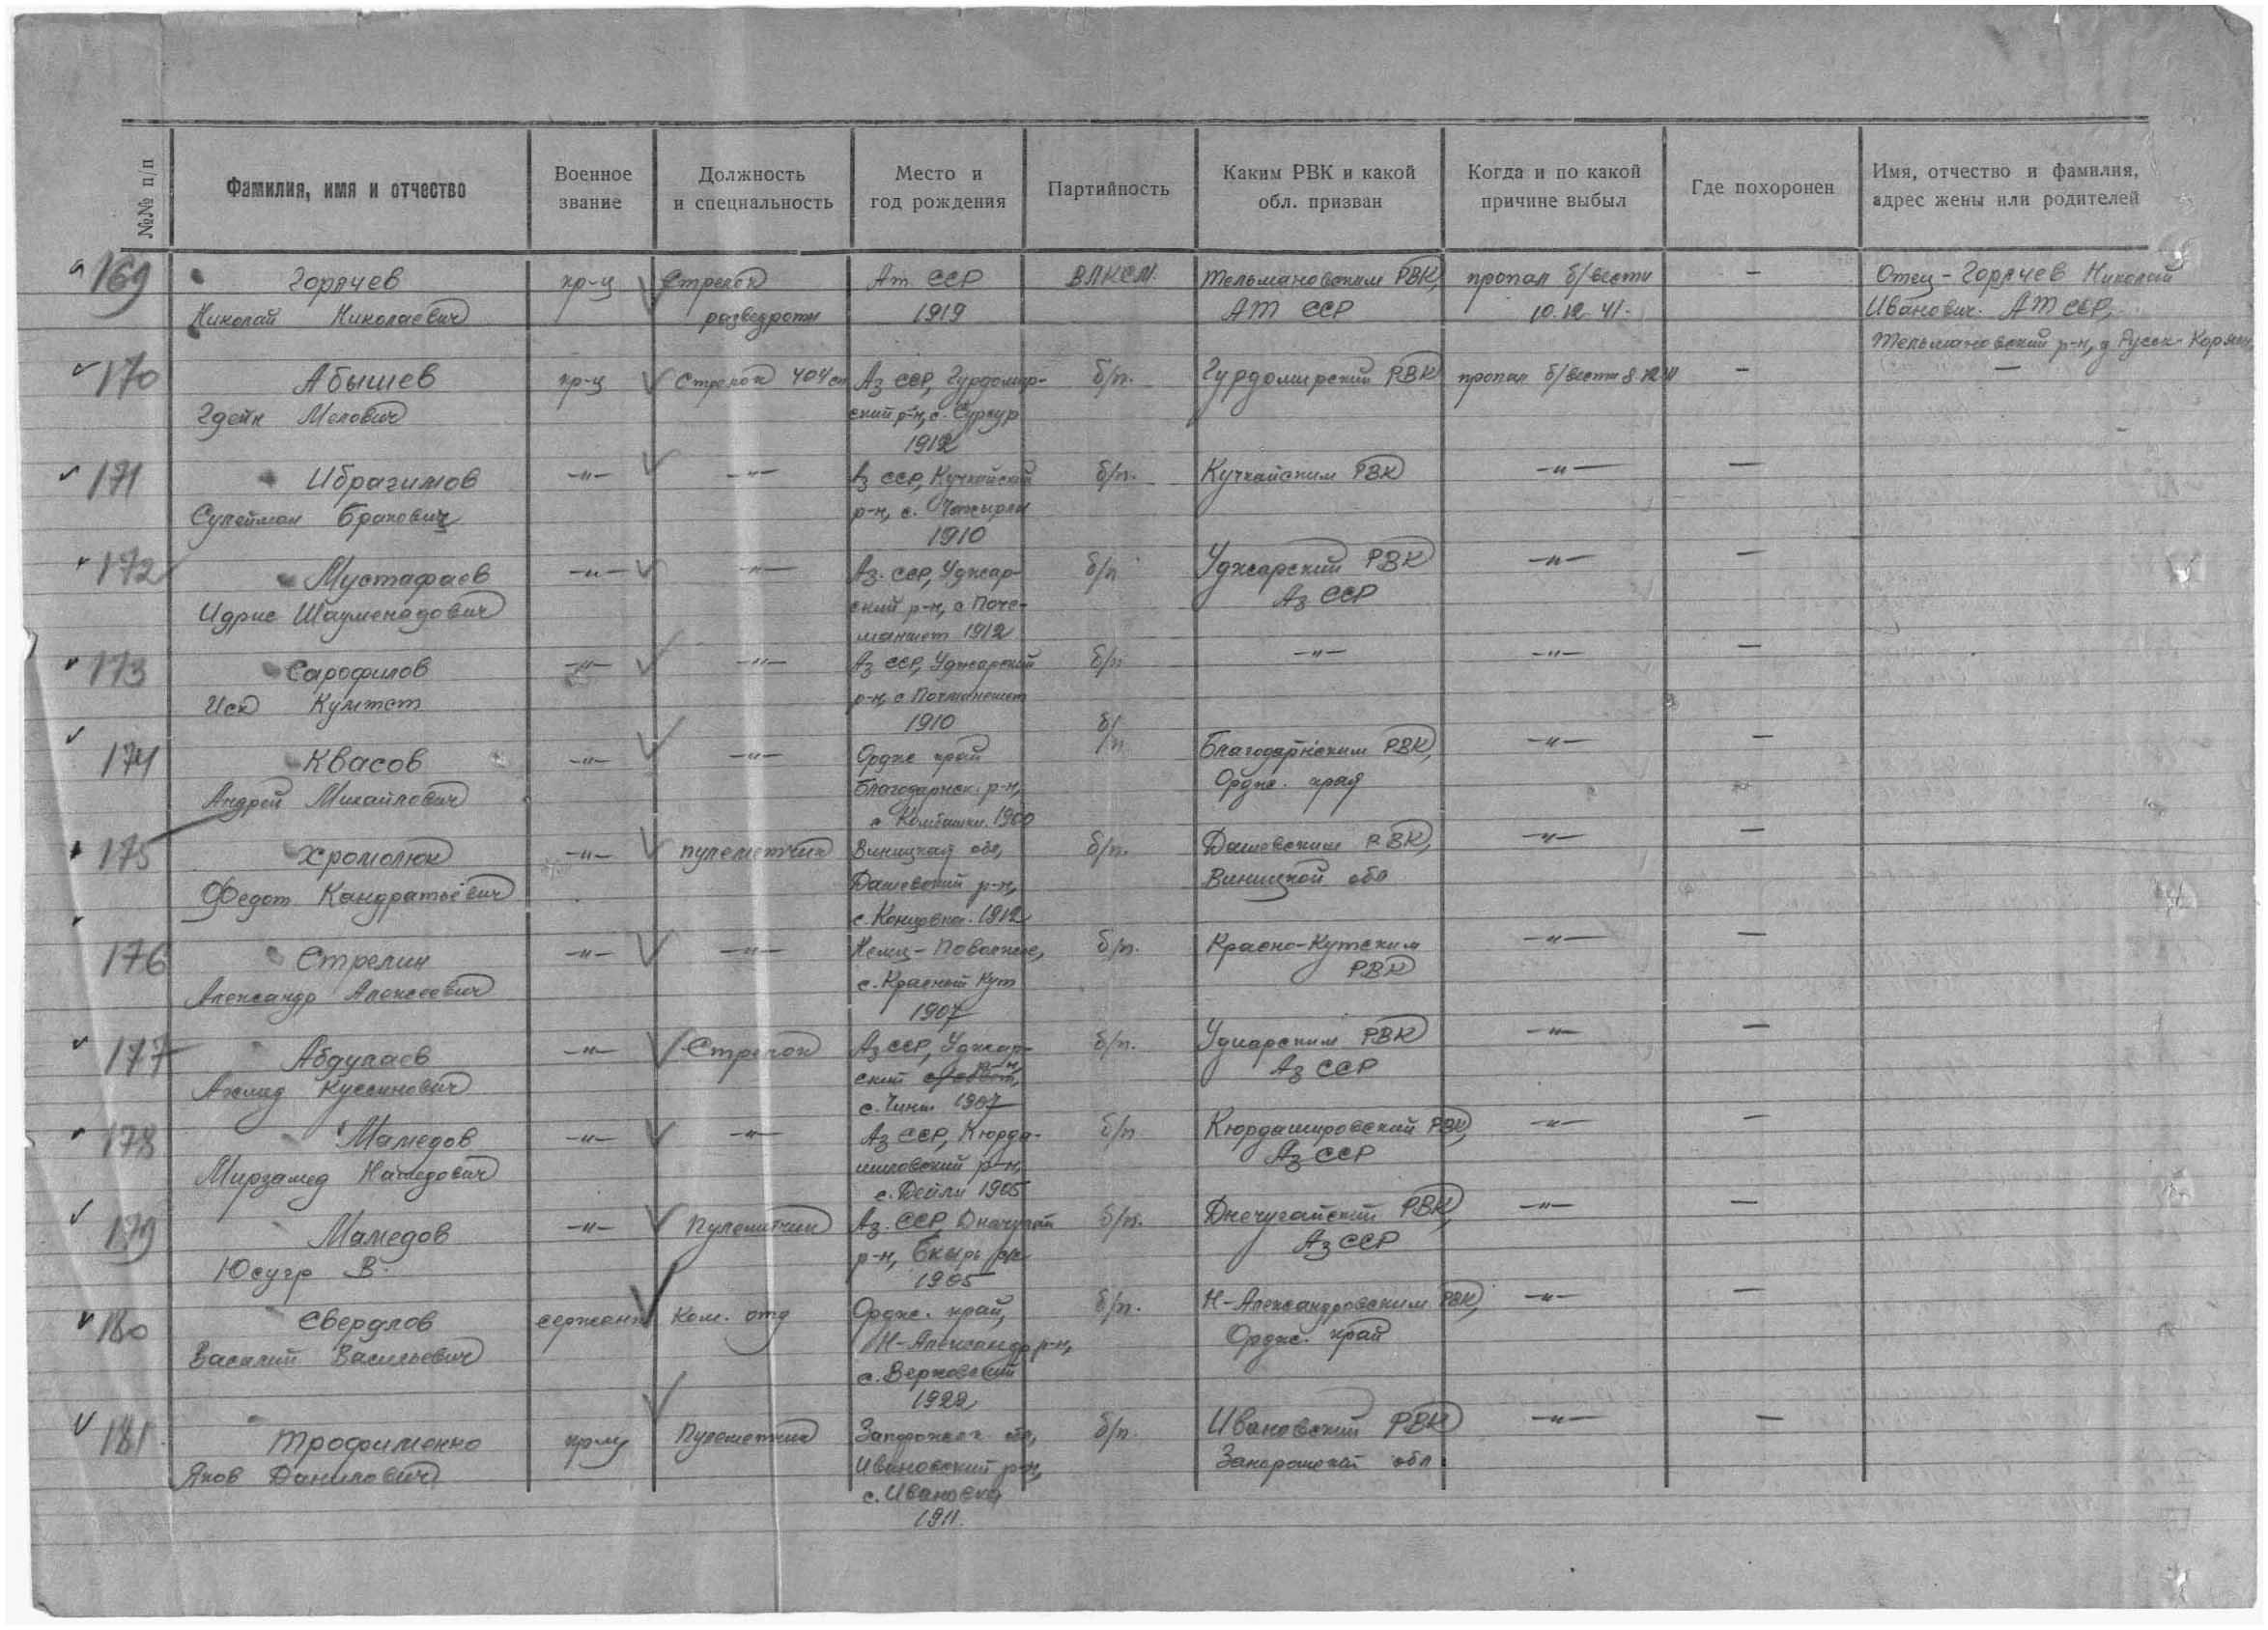 №№ п/п
Фамилия, имя и отчество
Военное звание
Должность и специальность
Место и год рождения
Партийность
Каким РВК и какой обл. призван
Когда и по какой причине выбыл
Где похоронен
Имя, отчество и фамилия, адрес жены или родителей
169 Горячев кр-ц Стрелок Ат. ССР ВЛКСМ. Тельмановским РВК, пропал б/вести — Отец - Горячев Николай
Николай Николаевич разведроты 1919 АТ ССР 10.12.41. Иванович. АТ ССР,
Тельмановский р-н, д Русск-
170 Абышев кр-ц Стрелок 404 сп Аз ССР, Гурдомир- б/п. Гурдомирский РВК пропал б/вести 8 12 41 — —
Гдейн Мелович ский р-н, с.
1912
171 Ибрагимов -"- -"- Аз ССР, Кучкайский б/п. Кучкайским РВК -"- —
Сулейман Бракович р-н, с.
1910
172 Мустафаев -"- -"- Аз. ССР, Уджар- б/п Уджарский РВК -"- —
Идрис ский р-н, с Поче- Аз ССР
маншет 1912
173 Сарофилов -"- -"- Аз ССР, Уджарский б/п -"- -"- —
Иса р-н, с Почманешет
1910
174 Квасов -"- -"- Ордже край б/п Благодарненским РВК, -"- —
Андрей Михайлович Благодарнск. р-н, Ордж. край
с Камбашки. 1900
175 Хромолюк -"- пулеметчик Виницкая обл, б/п. Дашевским РВК, -"- —
Федот Кандратьевич Дашевский р-н, Виницкой обл
с. Концовка. 1912
176 Стрелин -"- -"- Немц-Поволжье, б/п. Красно-Кутским -"- —
Александр Алексеевич с. Красный Кут РВК
1907
177 Абдулаев -"- Стрелок Аз ССР, Уджар- б/п. Уджарским РВК -"- —
Ахмад Куссинович ский р-н, Аз ССР
с. 1907
178 Мамедов -"- -"- Аз ССР, Кюрда- б/п. Кюрдамировский РВК, -"- —
Мирзамед Намедович мировский р-н, Аз ССР
с. Дейли 1905
179 Мамедов -"- Пулеметчик Аз. ССР, б/п. РВК, -"- —
Юсуф В. р-н, Аз ССР
1905
180 Свердлов сержант Ком. отд Ордж. край, б/п. Н-Александровским РВК, -"- —
Василий Васильевич Н-Александр р-н, Ордж. край
с. Верховский
1922
181 Трофименко кр-ц Пулеметчик Запорожск обл, б/п. Ивановский РВК -"- —
Яков Данилович Ивановский р-н, Запорожской обл
с. Ивановка
1911.